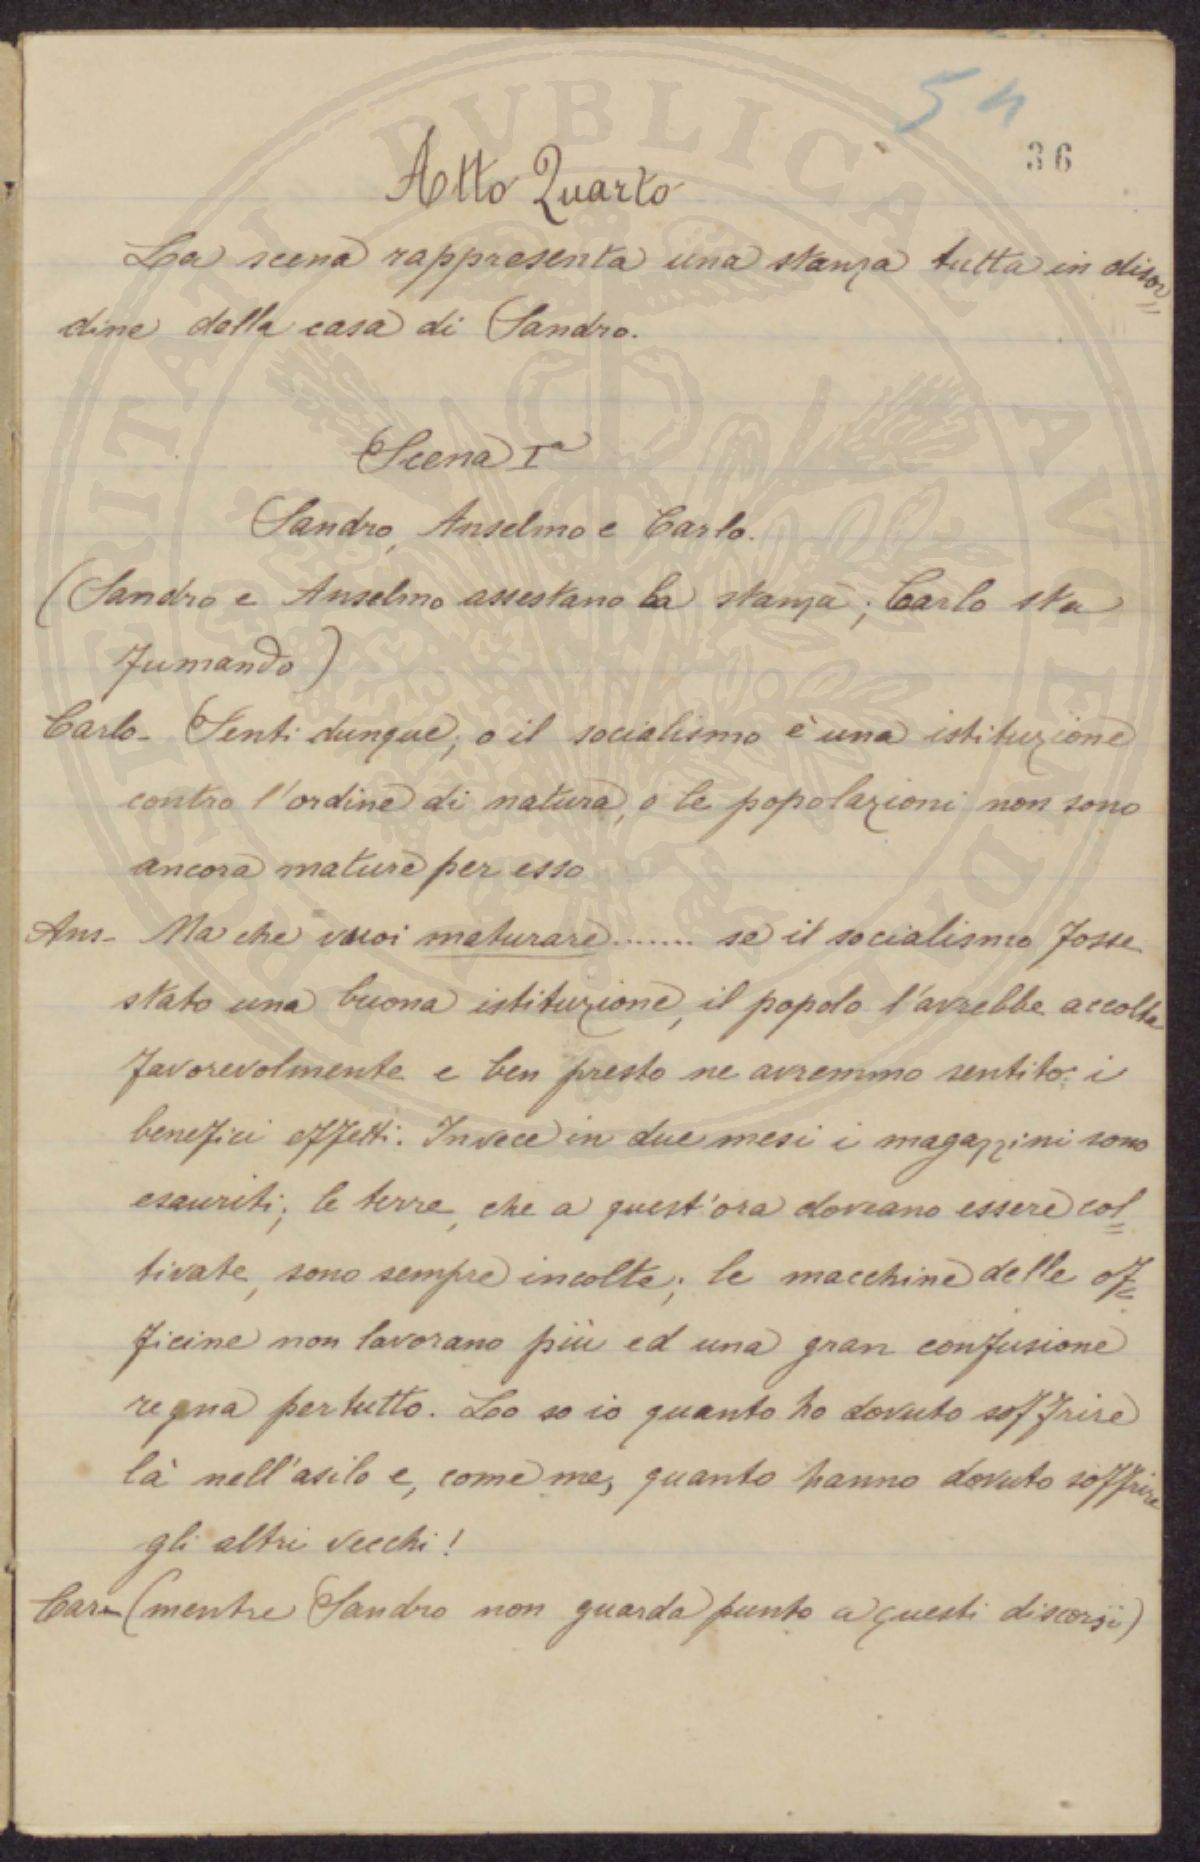 54
36
Atto Quarto
La scena rappresenta una stanza tutta in disor=
dine della casa di Sandro.
Scena Iª
Sandro, Anselmo e Carlo.
(Sandro e Anselmo assestano la stanza; Carlo sta
fumando)
Carlo - Senti dunque, o il socialismo è una istituzione
contro l'ordine di natura, o le popolazioni non sono
ancora mature per esso
Ans - Ma che vuoi maturare ....... se il socialismo fosse
stato una buona istituzione, il popolo l'avrebbe accolta
favorevolmente e ben presto ne avremmo sentito i
benefici effetti. Invece in due mesi i magazzini sono
esauriti; le terre, che a quest'ora doveano essere col=
tivate, sono sempre incolte; le macchine delle of=
ficine non lavorano più ed una gran confusione
regna per tutto. Lo so io quanto ho dovuto soffrire
là nell'asilo e, come me, quanto hanno dovuto soffrire
gli altri vecchi!
Car - (mentre Sandro non guarda punto a questi discorsi)
PROSPERITATI PVBLICAE AVGENDAE